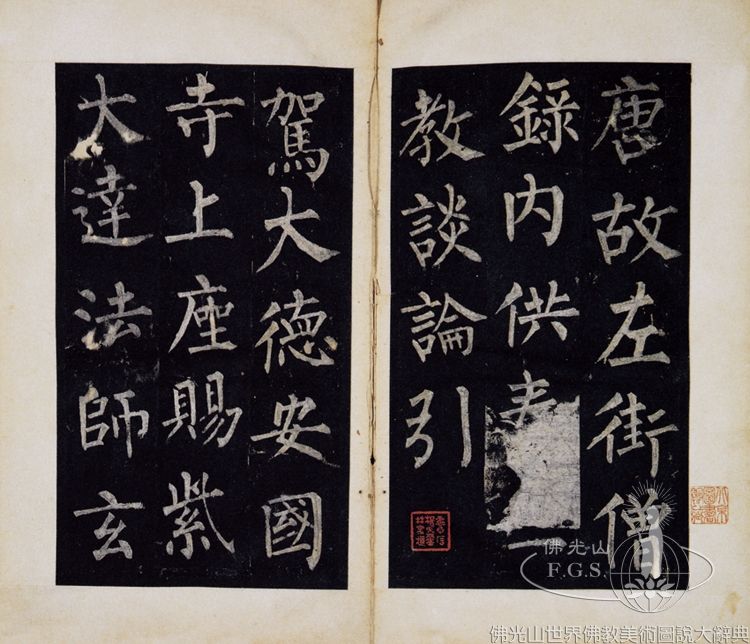 唐故左街僧
錄內供表
教談論引
駕大德安國
寺上座賜紫
大達法師玄
佛光山
F.G.S.
佛光山世界佛教美術圖說大辭典